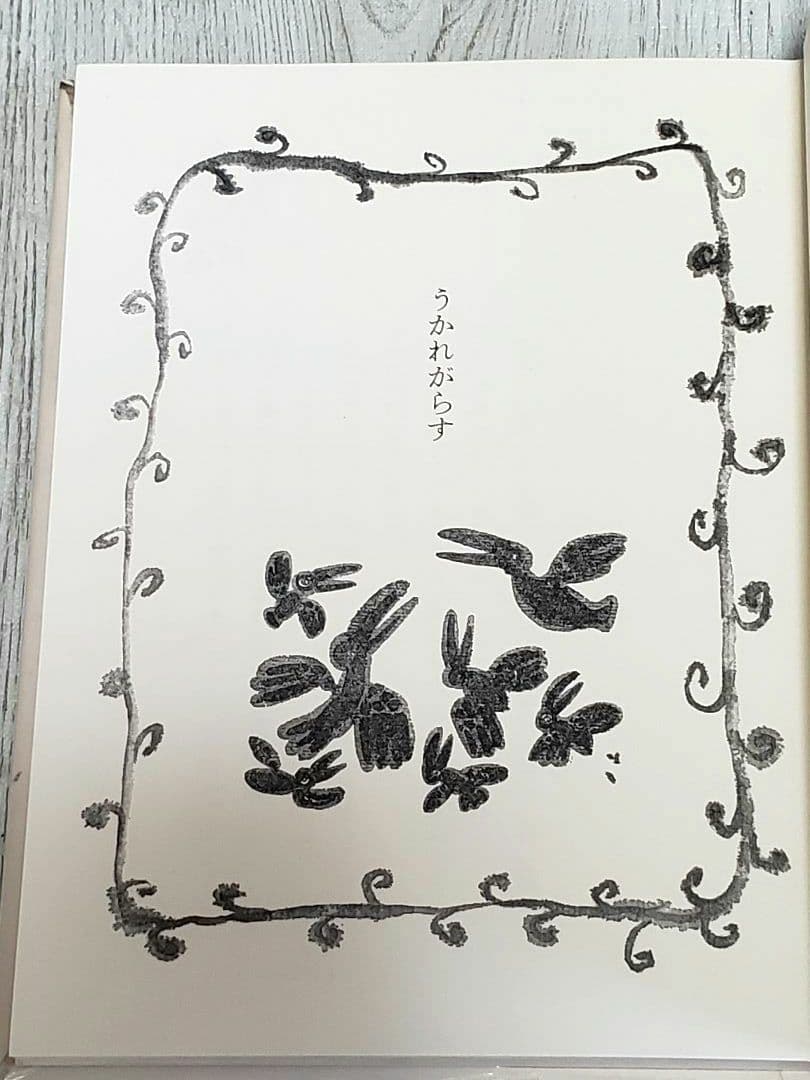 うかれがらす